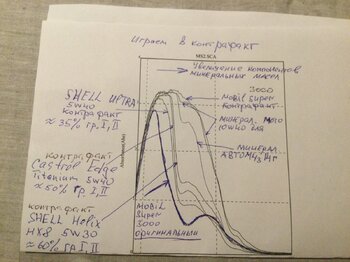 Играем в контрафакт
M02.SCA
Увеличение компонентов
минеральных масел
3000
Mobil Super
контрафакт
SHELL ULTRA
5W40
контрафакт
≈ 35% гр. I, II
минерал. мото
10W40 для
минерал.
контрафакт
Castrol Edge
Titanium 5W40
≈ 50% гр I, II
контрафакт
SHELL Helix
HX8 5W30
≈ 60% гр I, II
Mobil
Super
3000
оригинальный